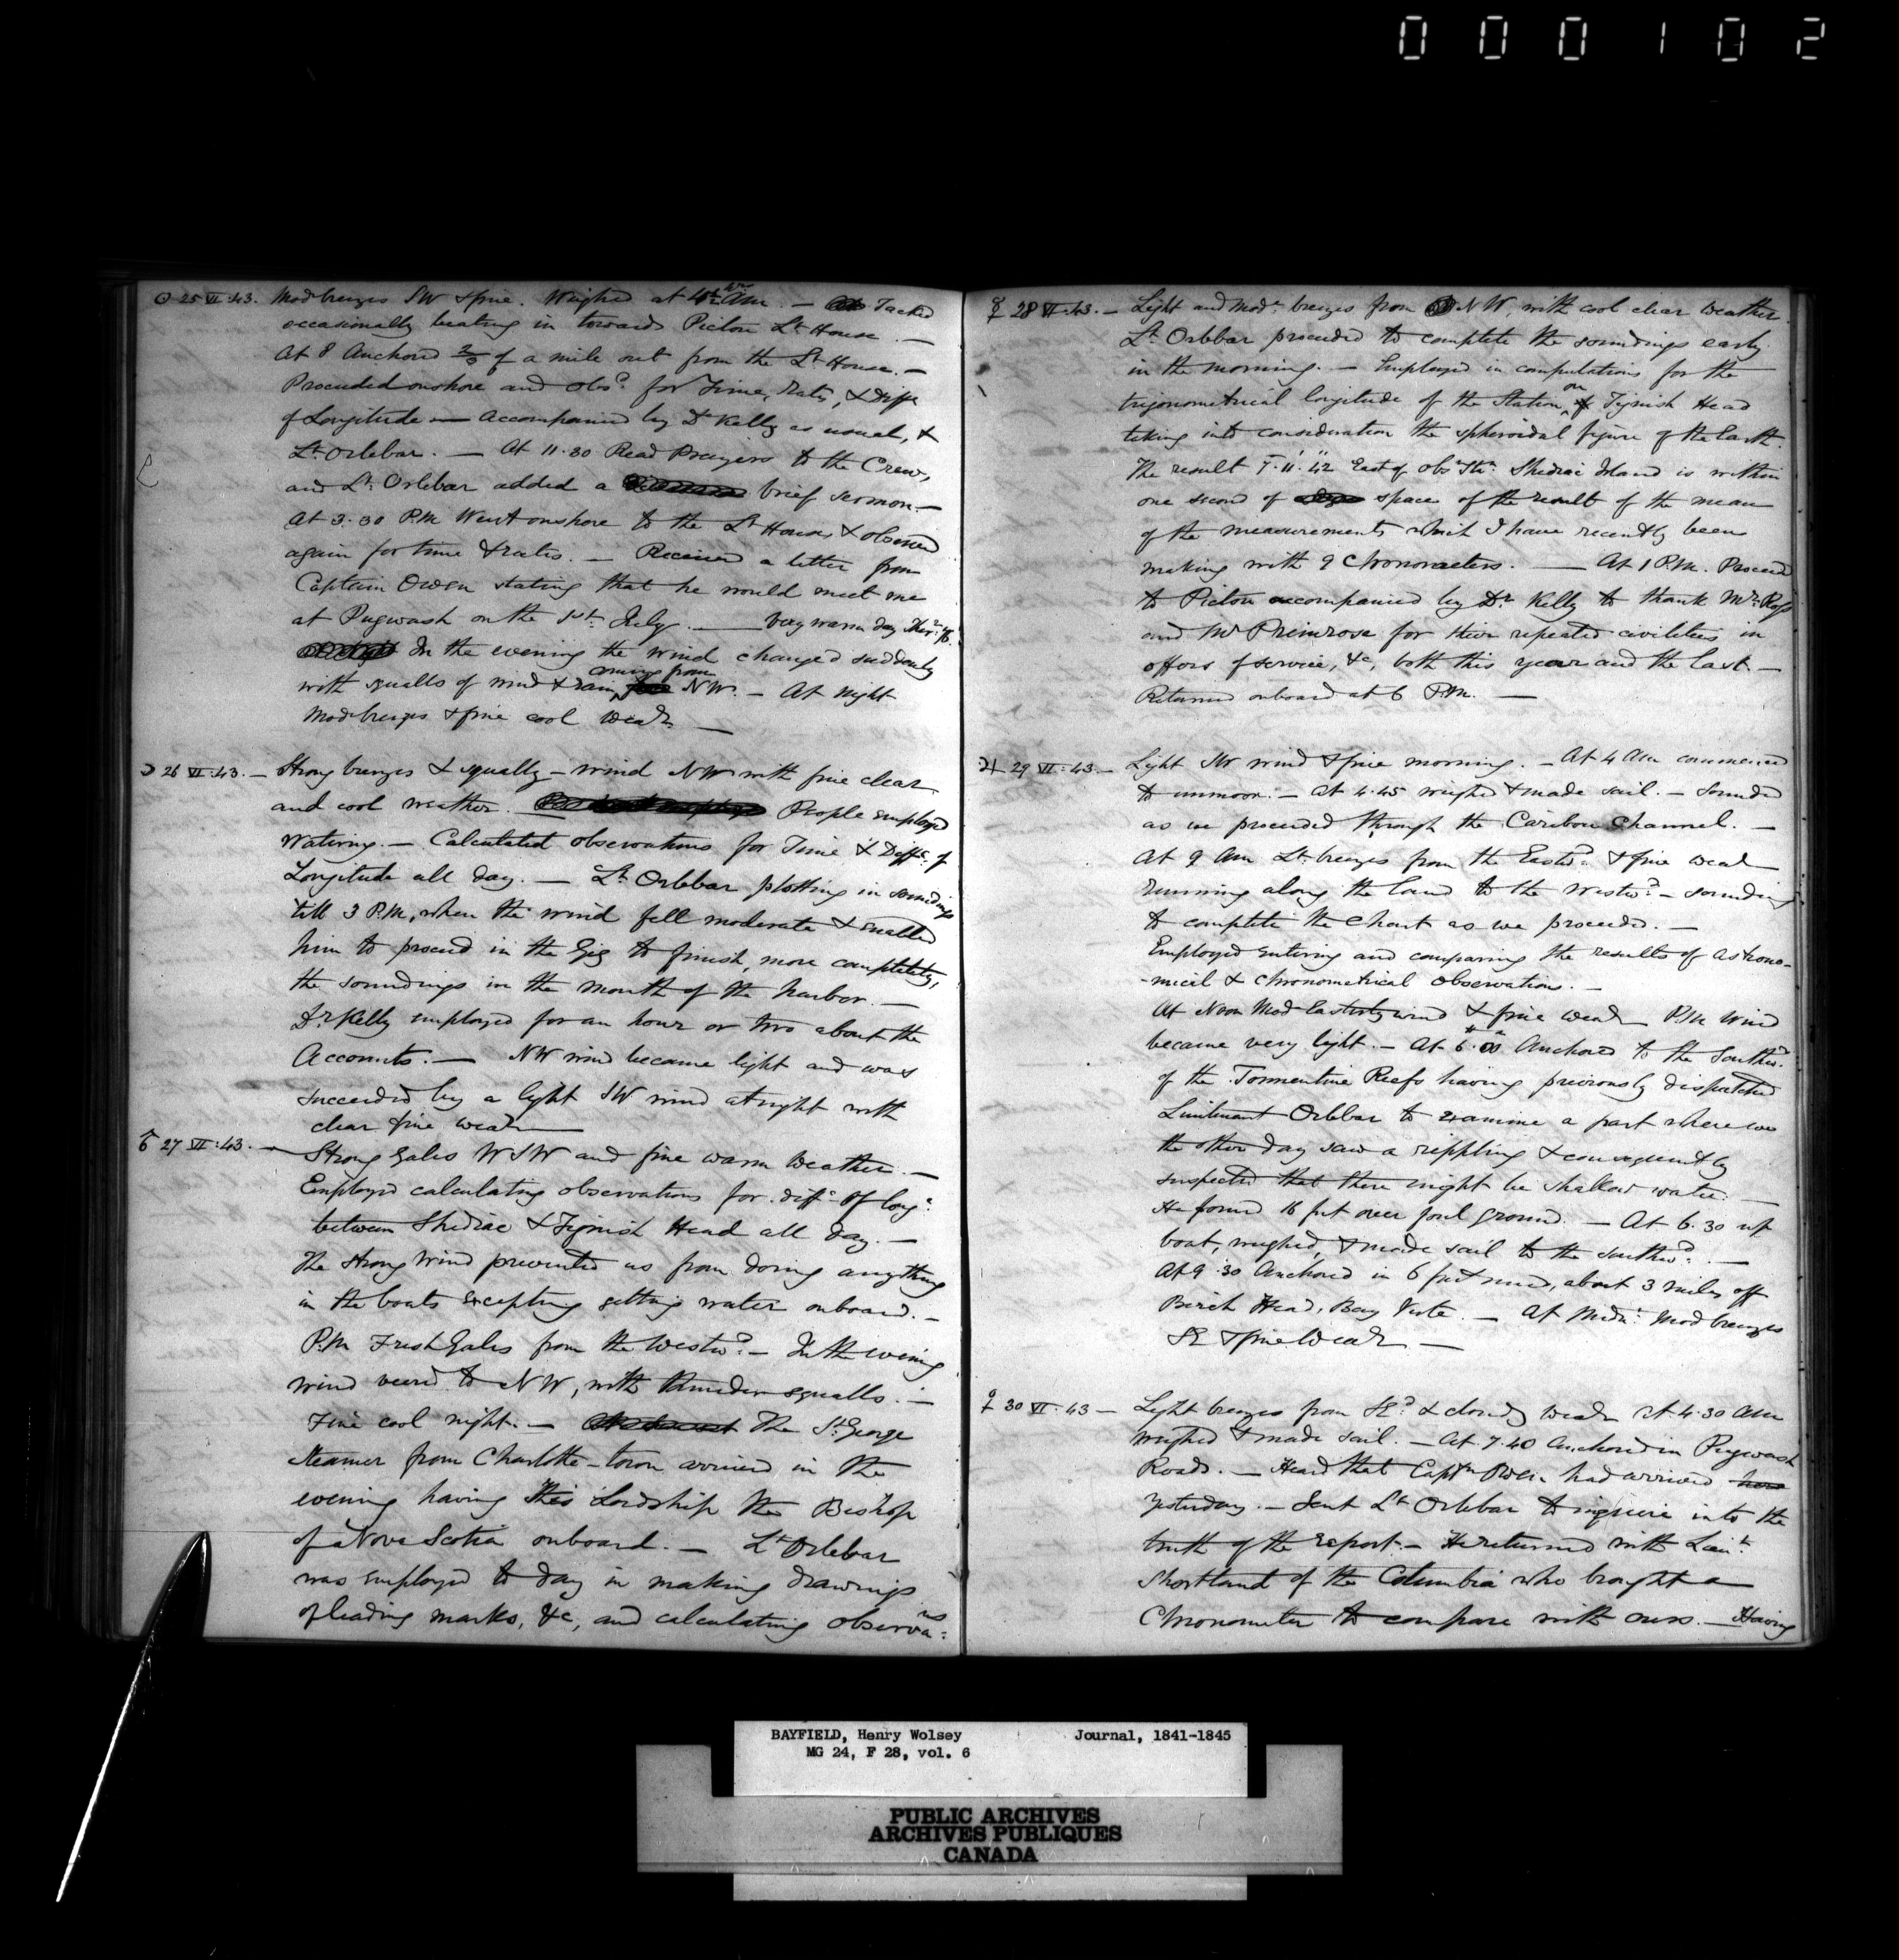 000102
☉ 25 VI :43. Mod breezes SW & fine. Weighed at 4 AM. — Tacked
occasionally beating in towards Pictou Lt House. —
At 8 Anchored 2/3 of a mile out from the Lt House. —
Proceeded onshore and obsd for Time, Rates, & Diffce
of Longitude — Accompanied by Dr Kelly as usual, &
Lt Orlebar. — At 11.30 Read Prayers to the Crew,
and Lt Orlebar added a brief sermon. —
At 3.30 P.M. Went onshore to the Lt House & observed
again for time & rates. — Received a letter from
Captain Owen stating that he would meet me
at Pugwash on the 1st July. — Very warm day Ther. 76.
In the evening the wind changed suddenly
with squalls of wind & rain, coming from NW. — At night
Mod breezes & fine cool weath —
☽ 26 VI :43. — Strong breezes & squally — wind NW with fine clear
and cool weather. People employed
Watering. — Calculated observations for Time & Diffce of
Longitude all day. — Lt Orlebar plotting in soundings
till 3 P.M., when the wind fell moderate & enabled
him to proceed in the Gig to finish, more completely,
the soundings in the mouth of the harbor. —
Dr Kelly employed for an hour or two about the
Accounts. — NW wind became light and was
succeeded by a light SW wind at night with
clear fine weath —
♂ 27 VI :43. — Strong Gales WSW and fine warm weather. —
Employed calculating observations for diffce of longe
between Shediac & Tignish Head all day. —
The strong wind prevented us from doing anything
in the boats excepting getting water onboard. —
P.M. Fresh Gales from the Westwd — In the evening
wind veered to NW, with thunder squalls. —
Fine cool night. — The St George
Steamer from Charlotte-town arrived in the
evening having His Lordship the Bishop
of Nova Scotia onboard. — Lt Orlebar
was employed to day in making drawings
of leading marks, &c, and calculating observans:
☿ 28 VI :43. — Light and Modte breezes from NW, with cool clear weather.
Lt Orlebar proceeded to complete the soundings early
in the morning. — Employed in computations for the
trigonometrical longitude of the Station on Tignish Head
taking into consideration the spheroidal figure of the Earth.
The result 5.11.42 East of obsn Stn Shediac Island is within
one second of space of the result of the mean
of the measurements which I have recently been
making with 9 Chronometers. — At 1 P.M. Proceed
to Pictou accompanied by Dr Kelly to thank Mr Ross
and Mr Primrose for their repeated civilities in
offers of service, &c, both this year and the last. —
Returned onboard at 6 P.M. —
♃ 29 VI :43. — Light SW wind & fine morning. — At 4 AM commenced
to unmoor. — At 4.45 weighed & made sail. — Sounded
as we proceeded through the Caribou Channel. —
At 9 AM Lt breezes from the Eastwd & fine weath
running along the land to the Westwd — sounding
to complete the Chart as we proceeded. —
Employed entering and comparing the results of astrono-
-mical & chronometrical observations. —
At Noon Mod Easterly wind & fine weath P.M. Wind
became very light. — At 6.00 Anchored to the Southwd
of the Tormentine Reefs having previously dispatched
Lieutenant Orlebar to examine a part where we
the other day saw a rippling & consequently
suspected that there might be shallow water. —
He found 16 feet over foul ground. — At 6.30 up
boat, weighed, & made sail to the Southwd. —
At 9.30 Anchored in 6 mud, about 3 miles off
Birch Head, Bay Verte. — At Midnt Mod breezes
SE & fine weath —
♀ 30 VI .43 — Light breezes from SEd & cloudy weath At 4.30 AM
weighed & made sail. — At 7.40 Anchored in Pugwash
Roads. — Heard that Captn Owen had arrived here
yesterday. — Sent Lt Orlebar to inquire into the
truth of the report. — He returned with Lieut
Shortland of the Columbia who brought a
Chronometer to compare with ours. — Having
BAYFIELD, Henry Wolsey Journal, 1841-1845
MG 24, F 28, vol. 6
PUBLIC ARCHIVES
ARCHIVES PUBLIQUES
CANADA